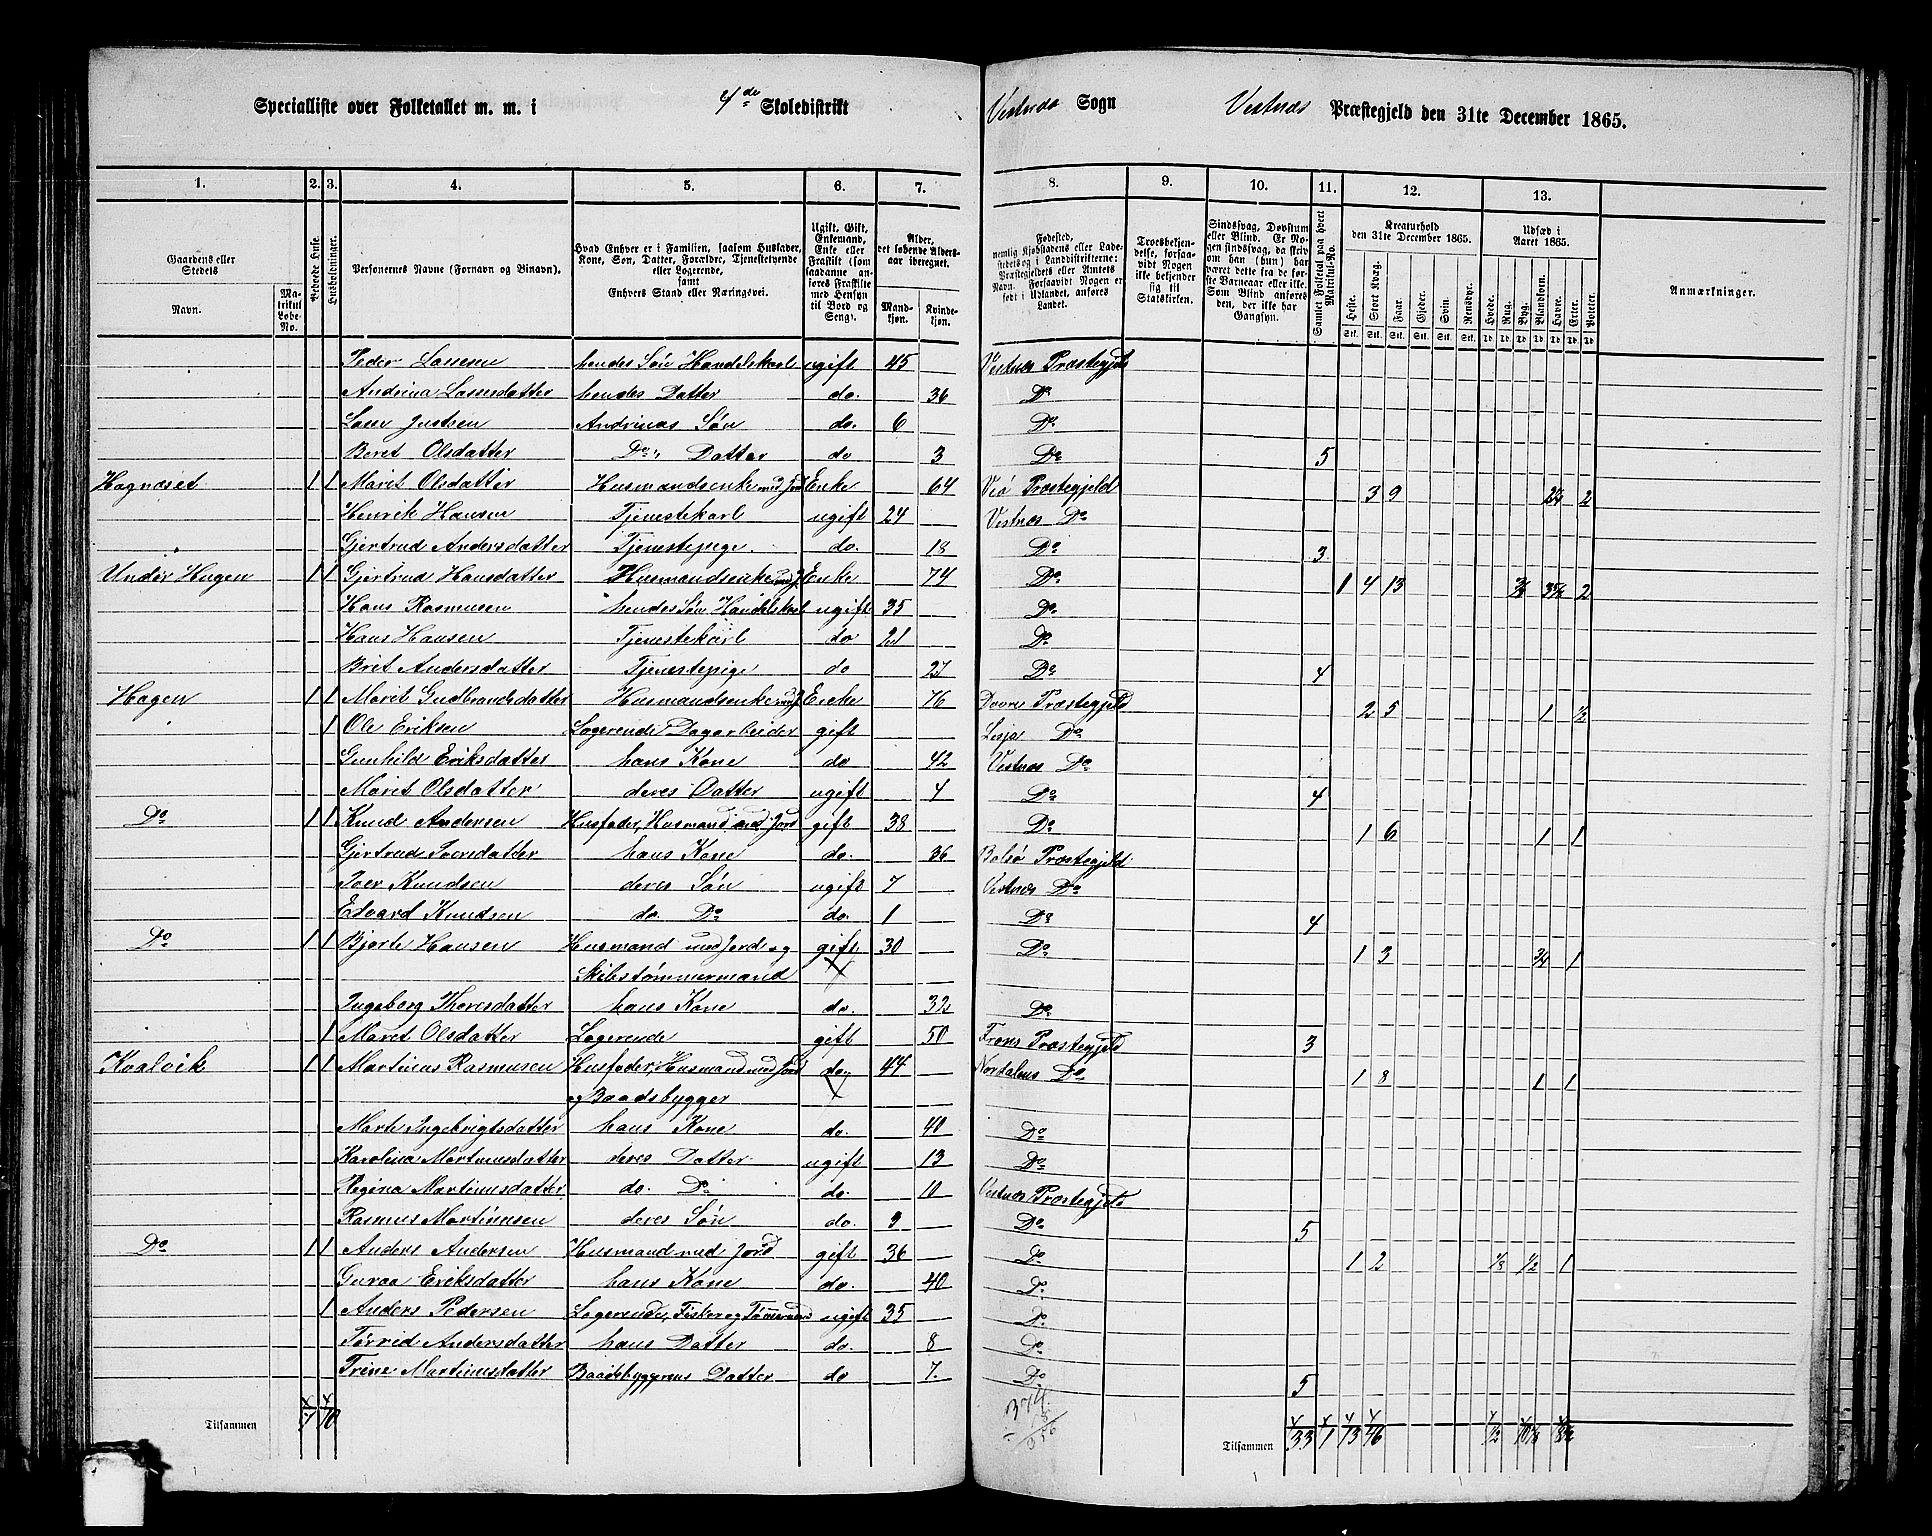 Specialliste over Folketallet m. m. i 4de Skoledistrikt Vestnæs Sogn Vestnæs Præstegjeld den 31te December 1865.
1. 2. 3. 4. 5. 6. 7. 8. 9. 10. 11. 12. 13.
Gaardens eller Stedets
Navn.
Matrikul Løbe-No.
Beboede Huse.
Husholdninger.
Personernes Navne (Fornavn og Binavn).
Hvad Enhver er i Familien, saasom Husfader, Kone, Søn, Datter, Forældre, Tjenestetyende eller Logerende,
samt
Enhvers Stand eller Næringsvei.
Ugift, Gift, Enkemand, Enke eller Fraskilt (som saadanne anføres Fraskilte med Hensyn til Bord og Seng).
Alder, det løbende Alders-aar iberegnet.
Mandkjøn.
Kvindekjøn.
Fødested,
nemlig Kjøbstadens eller Ladestedets og i Landdistrikterne: Præstegjeldets eller Amtets Navn. Forsaavidt Nogen er født i Udlandet, anføres Landet.
Troesbekjendelse, forsaavidt Nogen ikke bekjender sig til Statskirken.
Sindssvag, Døvstum eller Blind. Er Nogen sindssvag, da skrives om han (hun) har været dette fra de første Barneaar eller ikke. Som Blind anføres den, der ikke har Gangsyn.
Samlet Folketal paa hvert Matrikul-No.
Kreaturhold den 31te December 1865.
Heste. Stort Kvæg. Faar. Gjeder. Svin. Rensdyr.
Udsæd i Aaret 1865.
Hvede. Rug. Byg. Blandkorn. Havre. Erter. Poteter.
Anmærkninger.
Peder Lassesen hendes Søn Handelskarl ugift 45 Vestnæs Præstegjeld
Andrina Lassesdatter hendes Datter do. 36 Do
Lasse Justsen Andrinas Søn do. 6 Do
Beret Olsdatter Do Datter do 3 Do 5
Hagnæset 1 1 Marit Olsdatter Husmandsenke med Jord Enke 64 Veø Præstegjeld 3 9 2¼ 2
Henrik Hansen Tjenestekarl ugift 24 Vestnæs Do
Gjertrud Andersdatter Tjenestepige do. 18 Do 3
Under Hagen 1 1 Gjertrud Hansdatter Husmandsenke med J Enke 74 Do 1 4 13 2
Hans Rasmusen hendes Søn Handelskarl ugift 35 Do
Hans Hansen Tjenestekarl do 21 Do
Brit Andersdatter Tjenestepige do 27 Do 4
Hagen 1 1 Marit Gudbrandsdatter Husmandsenke med J Encke 76 Dovre Præstegjeld 2 5 1 ½
Ole Eriksen Logerende Dagarbeider gift Lesje Do
Gunhild Eriksdatter hans Kone do 42 Vestnæs Do
Marit Olsdatter deres Datter ugift 4 Do 4
Do 1 1 Knud Andersen Husfader, Husmand med Jord gift 38 Do 1 6 1 1
Gjertrud Iversdatter hans Kone do. 36 Bolsø Præstegjeld
Iver Knudsen deres Søn ugift 7 Vestnæs Do
Edvard Knudsen do. Do do. 1 Do 4
Do 1 1 Bjerte Hansen Husmand med Jord og gift 30 Do 1 3 ¾ 1
Skibstømmermand
Ingeborg Thoresdatter hans Kone do. 32 Do
1 Maret Olsdatter Logerende gift 50 Frons Præstegjeld 3
Kaalvik 1 1 Martinus Rasmusen Husfader, Husmand med Jord do. 44 Nordalens Do 1 8 1 1
og Baadsbygger
Marte Ingebrigtsdatter hans Kone do. 40 Do
Karolina Martinusdatter deres Datter ugift 13 Do
Regina Martinusdatter do. Do do. 10 Vestnæs Præstegjeld
Rasmus Martinusen deres Søn do. 3 Do 5
Do 1 1 Anders Andersen Husmand med Jord gift 36 Do 1 2 ⅛ ½ 1
Guraa Eriksdatter hans Kone do. 40 Do
1 Anders Pedersen Logerende, Fisker og Tømmermand ugift 35 Do
Torrid Andersdatter hans Datter do. 8 Do
Trine Martinusdatter Baadsbyggerens Datter do 7. Do 5
Tilsammen 7 10 Tilsammen 33 1 13 46